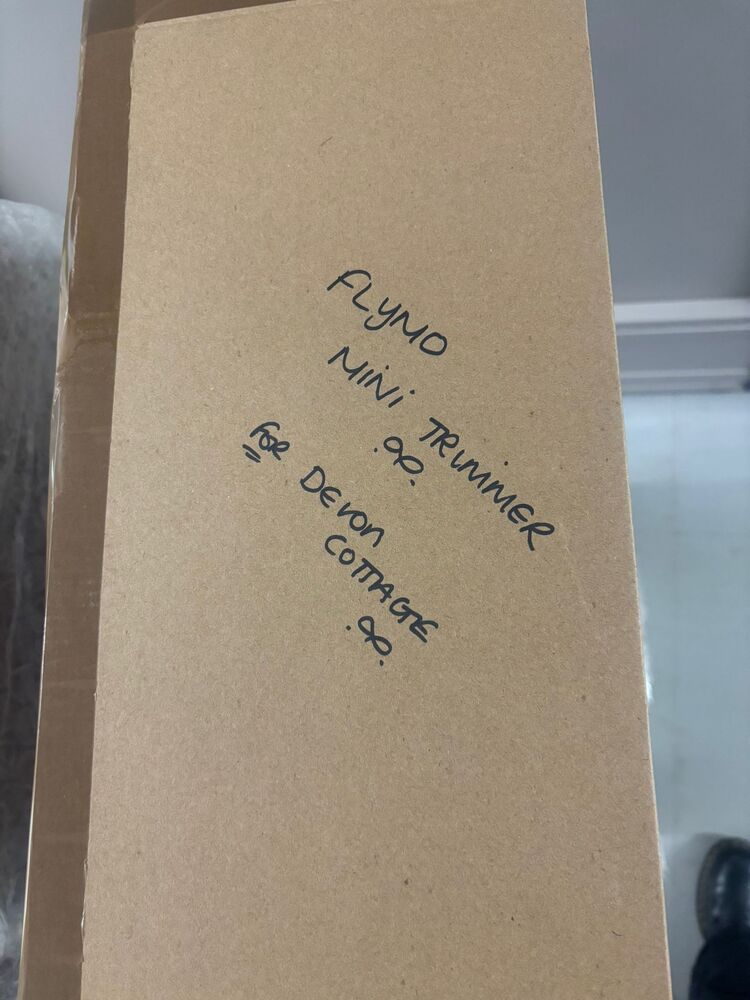 FLYMO
MINI TRIMMER
FOR DEVON
COTTAGE